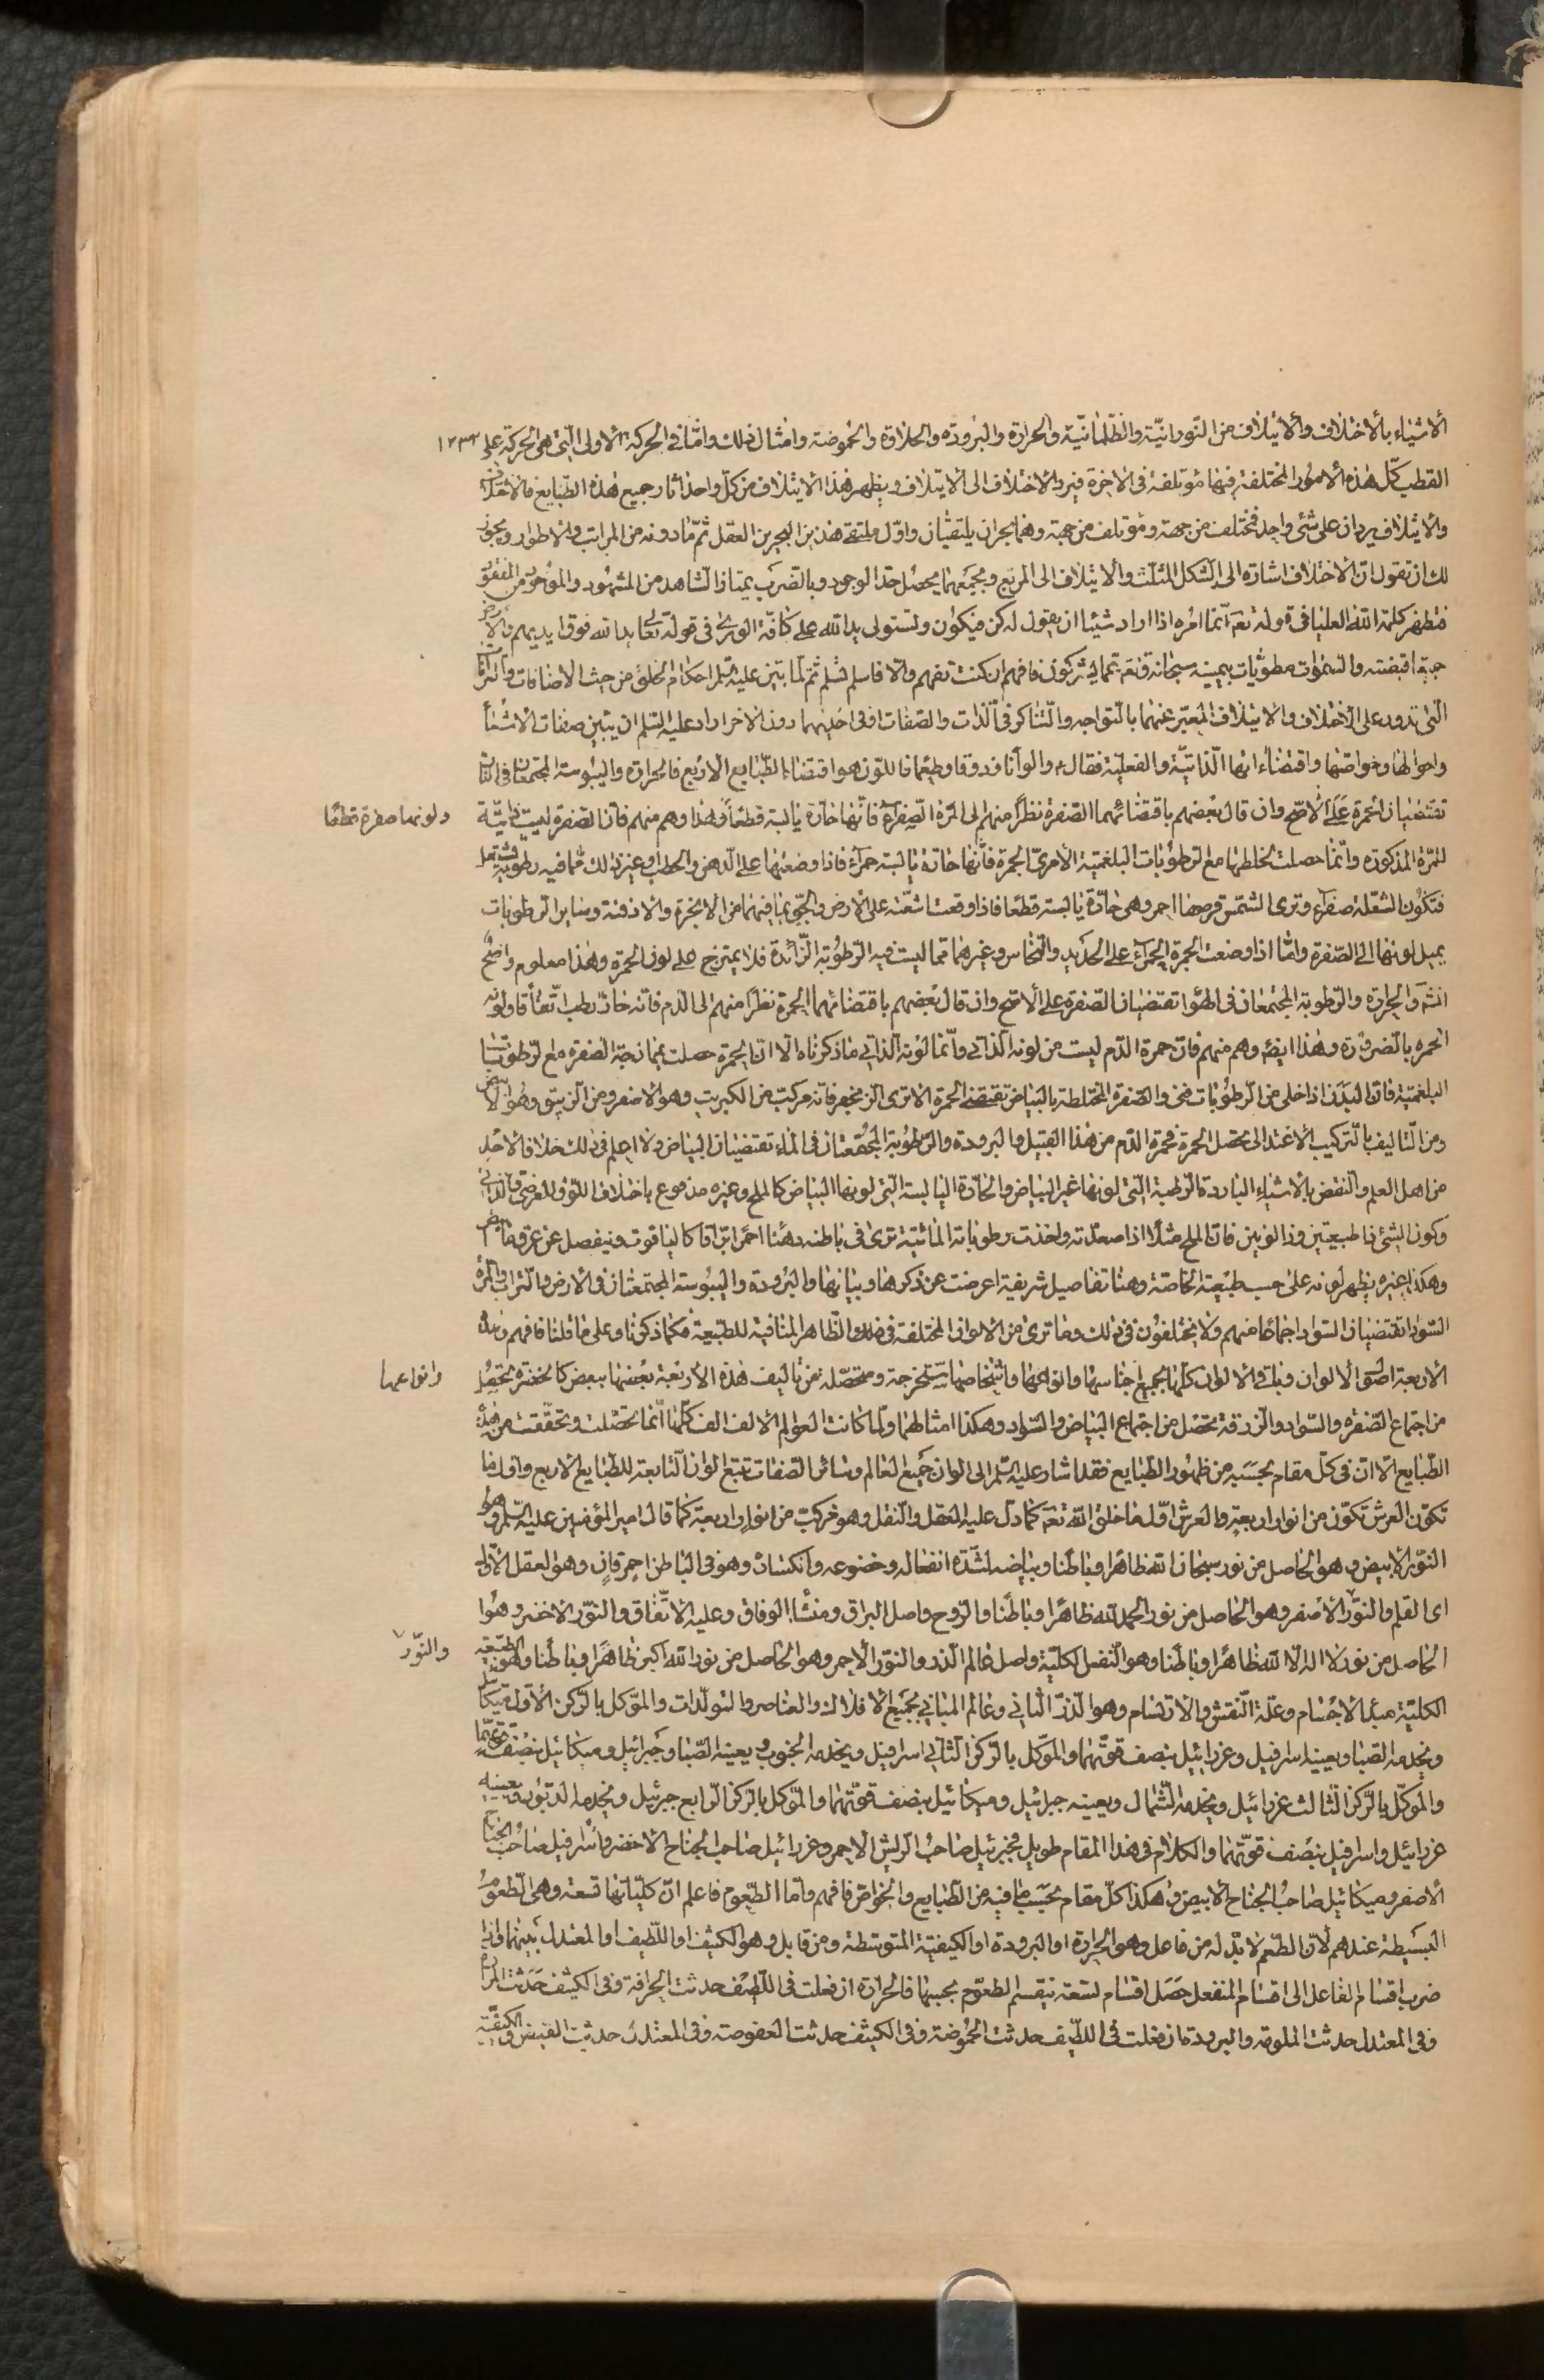 الاشياء بالاختلاف والايتلاف من النورانيّة والظّلمانيّة والحرارة والبرودة والحلاوة والحموضة وامثال ذلك وامّا فى الحركة الاولى الّتى هى الحركة على ١٢٣٢
القطب كلّ هذه الامور المختلفة فيها مؤتلفة فى الاخرة فيرد الاختلاف الى الايتلاف ويظهر بهذا الايتلاف من كلّ واحد اثار جميع هذه الطّبايع فالاختلاف
والايتلاف يردان على شئ واحد فمختلف من جهة ومؤتلف من جهة وهما بحران يلتقيان واوّل ملتقى هذين البحرين العقل ثمّ ما دونه من المراتب والاطوار ويجوز
لك ان تقول انّ الاختلاف اشارة الى الشكل المثلّث والايتلاف الى المربّع وبجمعهما يحصل حدّ الوجود وبالضرب يمتاز الشاهد من المشهود والموجود من المفقود
فتظهر كلمة الله العليا فى قوله تعَ انّما امره اذا اراد شيئا ان يقول له كن فيكون وتستولى يد الله على كافّة الورى فى قوله تعَ يد الله فوق ايديهم والارض
جميعا قبضته والسّموات مطويّات بيمينه سبحانه وتعَ عمّا يشركون فافهم ان كنت تفهم والّا فاسلم تسلم ثمّ لمّا بيّن عليه السّلم احكام الخلق من حيث الاضافات
الّتى تدور على الاختلاف والايتلاف المعبّر عنهما بالتواجه والتّناكر فى الذات والصّفات او فى احديهما دون الاخر اراد عليه السّلم ان يبيّن صفات الاشياء
واحوالها وخواصّها واقتضاءاتها الذّاتيّة والفعليّة فقال ء والوانا وذوقا وطعما فاللّون هو اقتضاء الطّبايع الاربع فالحرارة واليبوسة المجتمعتان فى النّار
تقتضيان الحمرة على الاصّح وان قال بعضهم باقتضائهما الصّفرة نظراً منهم الى المرّة الصّفراء فانّها حارّة يابسة قطعاً وهذا وهم منهم فانّ الصّفرة ليست ذاتيّة
ولونها صفرة قطعًا
للمرّة المذكورة وانّما حصلت لخلطها مع الرطوبات البلغميّة الا ترى الجمرة فانّها حارّة يابسة حمراء فاذا وضعتها على الدّهن والحطب وغير ذلك ممّا فيه رطوبة فتشتعل
فتكون الشّعلة صفراء وترى الشّمس قرصها احمر وهى حارّة يابسة قطعًا فاذا وقعت اشعّته على الارض والجوّ بما فيهما من الابخرة والادخنة وساير الرطوبات
يميل لونها الى الصّفرة وامّا اذا وضعت الجمرة الحمراء على الحديد والنّحاس وغيرهما ممّا ليست فيه الرّطوبة الزّائدة فلا يمتزج على لون الحمرة وهذا معلوم واضح
انشَ والحرارة والرّطوبة المجتمعتان فى الهوا تقتضيان الصّفرة على الاصّح وان قال بعضهم باقتضائهما الحمرة نظراً منهم الى الدّم فانّه حارّ رطب اتّفاقا ولونه
الحمرة بالضّرورة وهذا ايضًا وهم منهم فانّ حمرة الدّم ليست من لونه الذّاتى وانّما لونه الذّاتى ما ذكرناه الّا انّ الحمرة حصلت بممازجة الصفرة مع الرّطوبات
البلغميّة فانّ البدن اذا خلى من الرطوبات فنى والصّفرة المختلطة بالبياض تقتضى الحمرة الا ترى الزنجفر فانّه مركّب من الكبريت وهو الاصفر ومن الزّيبق وهو الابيض
ومن التّاليف بالتّركيب الاعتدالى تحصل الحمرة فحمرة الدّم من هذا القبيل والبرودة والرّطوبة المجتمعتان فى الماء تقتضيان البياض ولا اعلم فى ذلك خلافا لاحد
من اهل العلم والنّقض بالاشياء الباردة الرّطبة الّتى لونها غير البياض والحارّة اليابسة الّتى لونها البياض كالملح وغيره مدفوع باختلاف اللّون العرضى والذّاتى
وكون الشّئ ذا طبيعتين وذا لونين فانّ الملح مثلا اذا صعدته واخذت رطوباته المائيّة ترى فى باطنه دهنًا احمر برّاقا كالياقوت وينفصل عن عرق ابيض
وهكذا غيره يظهر لونه على حسب طبيعته الخاصّة وهنا تفاصيل شريفة اعرضت عن ذكرها وبيانها والبرودة واليبوسة المجتمعتان فى الارض والتراب والمرّة
السّوداء تقتضيان السّواد اجماعًا منهم ولا يختلفون فى ذلك وما ترى من الالوان المختلفة فى الظّاهر المنافية للطّبيعة فكما ذكرنا وعلى ما قلنا فافهم وهذه
الاربعة اصول الالوان وباقى الالوان كلّها بجميع اجناسها وانواعها واشخاصها مستخرجة ومتحصّلة من تاليف هذه الاربعة بعضها ببعض كالخضرة تحصل
وانواعها
من اجتماع الصّفرة والسّواد والزرقة تحصل من اجتماع البياض والسّواد وهكذا امثالهما ولمّا كانت العوالم الالف الف كلّها انّما تحصّلت وتحقّقت من هذه
الطّبايع الّا انّ فى كلّ مقام بحسبه من ظهور الطّبايع فقد اشار عليه السّلم الى الوان جميع العالم وسائر الصّفات تتبع الوان التّابعة للطّبايع الاربع واوّل ما
تكوّن العرش تكوّن من انوار اربعة والعرش اوّل ما خلق الله تعَ كما دلّ عليه العقل والنّقل وهو مركّب من انوار اربعة كما قال امير المؤمنين عليه السّلم وهو
النّور الابيض وهو الحاصل من نور سبحان الله ظاهرا وباطنا وبياضه لشدّة انفعاله وخضوعه وانكساره وهو فى الباطن احمر قانٍ وهو العقل الاوّل
اى القلم والنّور الاصفر وهو الحاصل من نور الحمد لله ظاهرًا وباطنا والرّوح واصل البراق ومنشأ الوفاق وعليه الاتّفاق والنّور الاخضر وهو
الحاصل من نور لا اله الا الله ظاهرا وباطنا وهو النّفس الكليّة واصل عالم الذر والنّور الاحمر وهو الحاصل من نور الله اكبر ظاهرًا وباطنا وهو الطبيعة
والنّور
الكليّة مبدء الاجسام وعلّة النّقش والارتسام وهو الذّر الثّانى وعالم المبانى بجميع الافلاك والعناصر والمتولّدات والموكّل بالرّكن الاوّل ميكائيل
ويخدمه الصّبا ويعينه اسرافيل وعزرائيل بنصف قوّتهما والموكّل بالرّكن الثّانى اسرافيل ويخدمه الجنوب ويعينه جبرائيل وميكائيل بنصف قوّتهما
والموكّل بالرّكن الثّالث عزرائيل ويخدمه الشّمال ويعينه جبرائيل وميكائيل بنصف قوّتهما والموكّل بالرّكن الرّابع جبرئيل ويخدمه الدبور ويعينه
عزرائيل واسرافيل بنصف قوّتهما والكلام فى هذا المقام طويل فجبرئيل صاحب الرّيش الاحمر وعزرائيل صاحب الجناح الاخضر واسرافيل صاحب الجناح
الاصفر وميكائيل صاحب الجناح الابيض وهكذا كلّ مقام بحسب ما فيه من الطّبايع والخواصّ فافهم وامّا الطّعوم فاعلم انّ كليّاتها تسعة وهى الطّعوم
البسيطة عندهم لانّ الطّعم لا بدّ له من فاعل وهو الحرارة او البرودة او الكيفيّة المتوسّطة ومن قابل وهو الكثيف او اللّطيف او المعتدل بينهما فاذا
ضرب اقسام الفاعل الى اقسام المنفعل حصل اقسام تسعة تنقسم الطعوم بحسبها فالحرارة ان فعلت فى اللّطيف حدثت الحرافة وفى الكثيف حدثت المرارة
وفى المعتدل حدثت الملوحة والبرودة ان فعلت فى اللّطيف حدثت الحموضة وفى الكثيف حدثت العفوصة وفى المعتدل حدثت القبض والكيفيّة